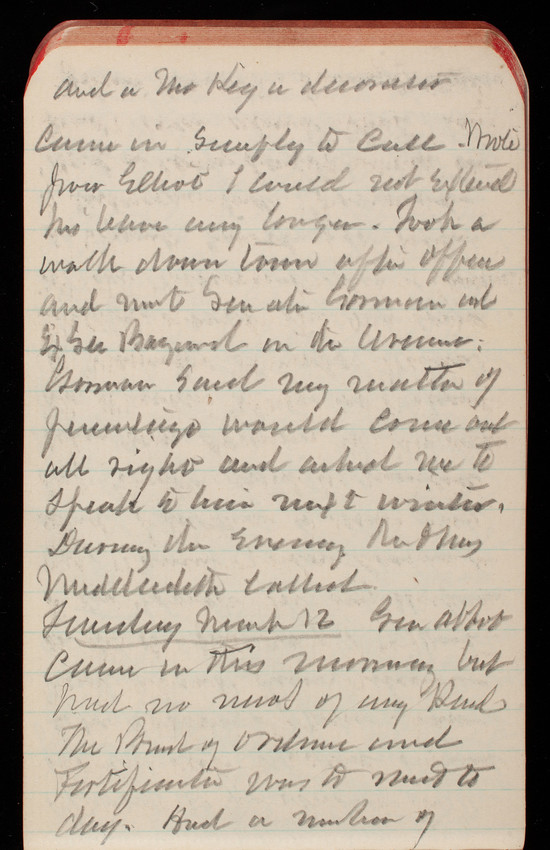 and a Mr Key a decorator
came in simply to call. Wrote
from Elliot I could not extend
his leave any longer. Took a
walk down town after office
and met Senator Gorman and
Ex Sec Bayard on the Avenue.
Gorman said my matter of
privilege would come out
all right and asked me to
speak to him next winter.
During the Evening
called
March 12 Gen Abbot
came in this morning but
had no news of any kind
The Board of Ordnance and
Fortification was to meet to
day. Had a number of